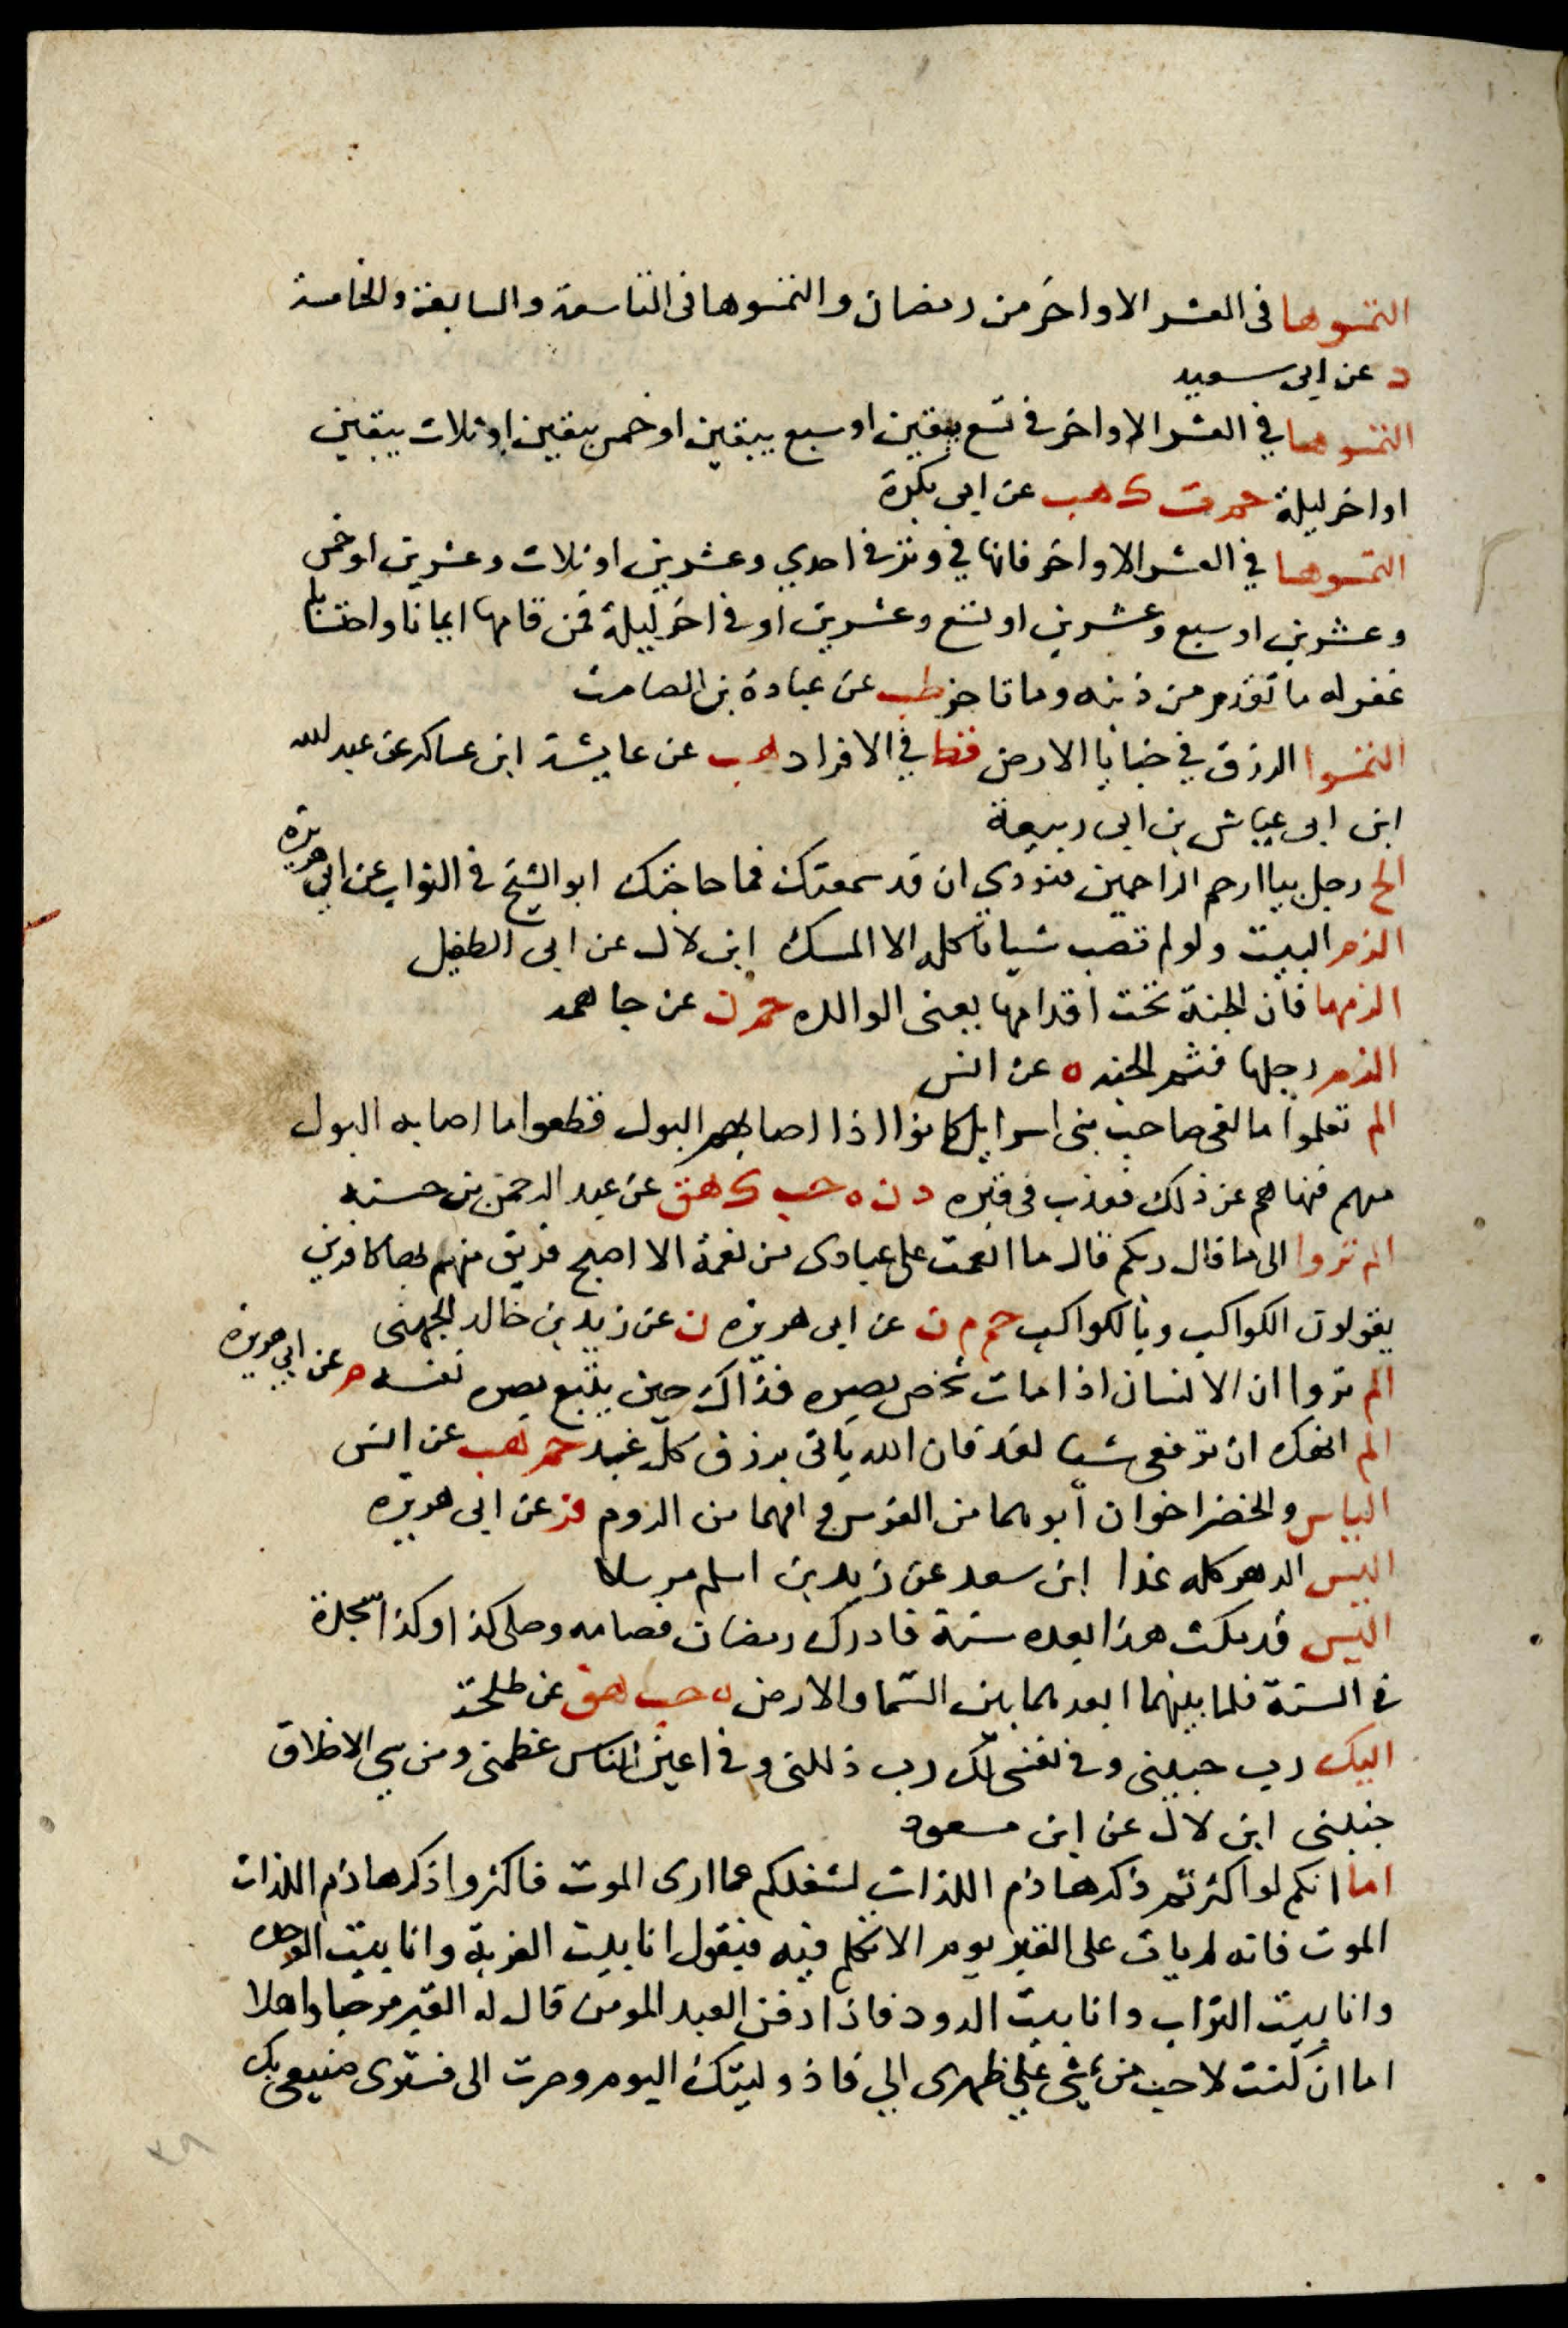 التمسوها فى العشر الاواخر من رمضان والتمسوها فى التاسعة والسابعة والخامسة
د عن ابى سعيد
التمسوها في العشر الاواخر في تسع يبقين او سبع يبقين او خمس يبقين او ثلاث يبقين
او اخر ليلة حم ت ك هب عن ابي بكرة
التمسوها في العشر الاواخر فانها في وتر في احدي وعشرين او ثلاث وعشرين او خمس
وعشرين او سبع وعشرين او تسع وعشرين او في اخر ليلة فمن قامها ايمانا واحتسابا
غفر له ما تقدم من ذنبه وما تاخر طب عن عبادة بن الصامت
التمسوا الرزق في خبايا الارض قط في الافراد هب عن عايشة ابن عساكر عن عبد الله
ابن ابى عياش بن ابى ربيعة
الح رجل بيا ارحم الراحمين فنودي ان قد سمعتك فما حاجتك ابو الشيخ في الثواب عن ابي هريرة
الزم البيت ولو لم تصب شيا تاكله الا المسك ابن لال عن ابى الطفيل
الزمها فان الجنة تحت اقدامها يعنى الوالده حم ن عن جاهمه
الزم رجلها فثم الجنه ه عن انس
الم تعلموا ما لقى صاحب بنى اسرايل كانوا اذا اصابهم البول قطعوا ما اصابه البول
منهم فنهاهم عن ذلك فعذب فى قبره د ن ه حب ك هق عن عبد الرحمن بن حسنه
الم تروا الى ما قال ربكم قال ما انعمت على عبادى من نعمة الا اصبح فريق منهم بها كافرين
يقولون الكواكب وبالكواكب حم م ن عن ابى هريره ن عن زيد بن خالد الجهنى
الم تروا ان الانسان اذا مات شخص بصره فذاك حين يتبع بصره نفسه م عن ابي هريرة
الم انهك ان ترفعى شيا لغد فان الله ياتى برزق كل غد حم هب عن انس
الياس والخضر اخوان ابوهما من الفرس وامهما من الروم فر عن ابى هريره
اليس الدهر كله غدا ابن سعد عن زيد بن اسلم مرسلا
اليس قد مكث هذا بعده سنة فادرك رمضان فصامه وصلى كذا وكذا سجدة
في السنة فلما بينهما ابعد مما بين السما والارض ه حب هق عن طلحة
اليك رب حببنى وفى نفسى لك رب ذللنى وفي اعين الناس عظمنى ومن سي الاخلاق
جنبنى ابن لال عن ابن مسعود
اما انكم لو اكثرتم ذكر هاذم اللذات لشغلكم عما ارى الموت فاكثروا ذكر هاذم اللذات
الموت فانه لم يات على القبر يوم الا تكلم فيه فيقول انا بيت الغربة وانا بيت الوحده
وانا بيت التراب وانا بيت الدود فاذا دفن العبد المومن قال له القبر مرحبا واهلا
اما ان كنت لاحب من يمشى على ظهرى الي فاذ وليتك اليوم وصرت الى فسترى صنيعى بك